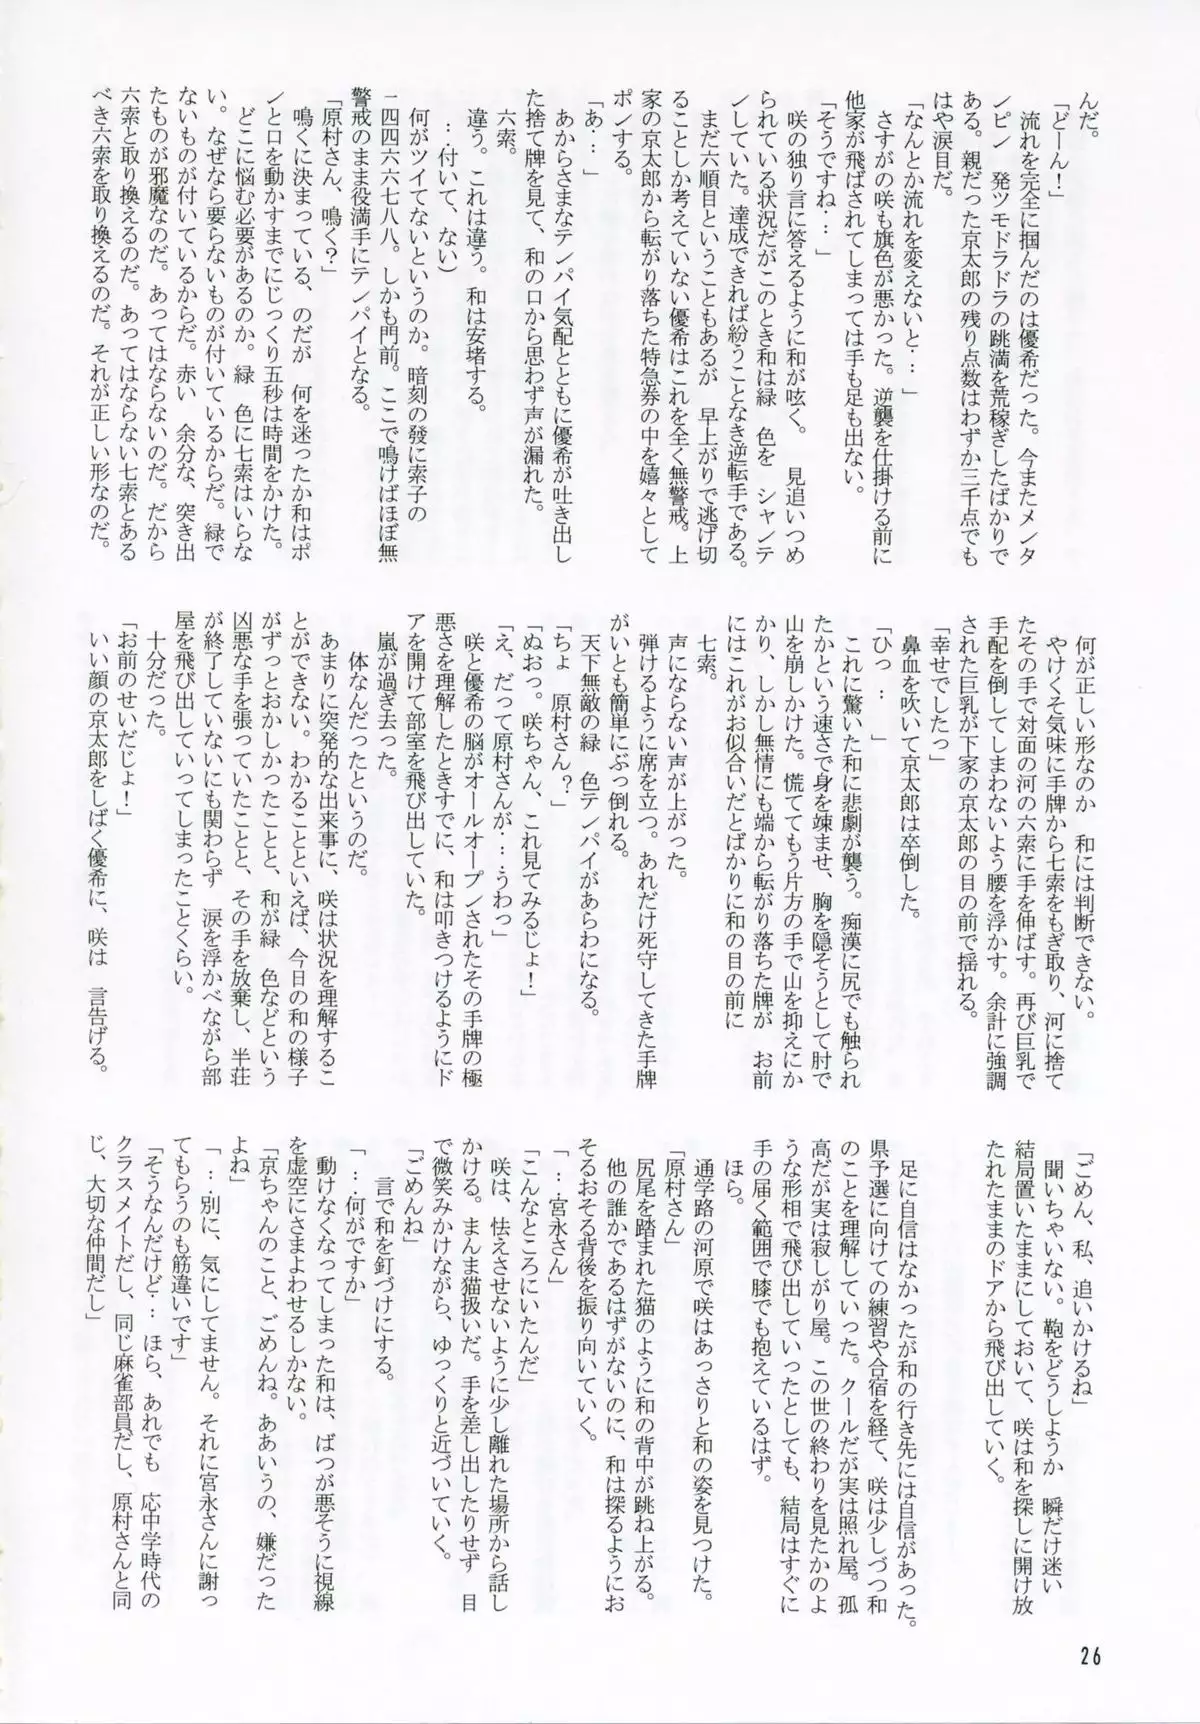 んだ。
「どーん！」
　流れを完全に掴んだのは優希だった。今またメンタ
ンピン　発ツモドラドラの跳満を荒稼ぎしたばかりで
ある。親だった京太郎の残り点数はわずか三千点でも
はや涙目だ。
「なんとか流れを変えないと…」
　さすがの咲も旗色が悪かった。逆襲を仕掛ける前に
他家が飛ばされてしまっては手も足も出ない。
「そうですね…」
　咲の独り言に答えるように和が呟く。　見追いつめ
られている状況だがこのとき和は緑　色を　シャンテ
ンしていた。達成できれば紛うことなき逆転手である。
　まだ六順目ということもあるが　早上がりで逃げ切
ることしか考えていない優希はこれを全く無警戒。上
家の京太郎から転がり落ちた特急券の中を嬉々として
ポンする。
「あ…」
　あからさまなテンパイ気配とともに優希が吐き出し
た捨て牌を見て、和の口から思わず声が漏れた。
　六索。
　違う。これは違う。和は安堵する。
（…付いて、ない）
　何がツイてないというのか。暗刻の發に索子の
四四六六七八八。しかも門前。ここで鳴けばほぼ無
警戒のまま役満手にテンパイとなる。
「原村さん、鳴く？」
　鳴くに決まっている、のだが　何を迷ったか和はポ
ンと口を動かすまでにじっくり五秒は時間をかけた。
　どこに悩む必要があるのか。緑　色に七索はいらな
い。なぜなら要らないものが付いているからだ。緑で
ないものが付いているからだ。赤い　余分な、突き出
たものが邪魔なのだ。あってはならないのだ。だから
六索と取り換えるのだ。あってはならない七索とある
べき六索を取り換えるのだ。それが正しい形なのだ。
　何が正しい形なのか　和には判断できない。
　やけくそ気味に手牌から七索をもぎ取り、河に捨て
たその手で対面の河の六索に手を伸ばす。再び巨乳で
手配を倒してしまわないよう腰を浮かす。余計に強調
された巨乳が下家の京太郎の目の前で揺れる。
「幸せでしたっ」
　鼻血を吹いて京太郎は卒倒した。
「ひっ…　」
　これに驚いた和に悲劇が襲う。痴漢に尻でも触られ
たかという速さで身を竦ませ、胸を隠そうとして肘で
山を崩しかけた。慌ててもう片方の手で山を抑えにか
かり、しかし無情にも端から転がり落ちた牌が　お前
にはこれがお似合いだとばかりに和の目の前に
　七索。
　声にならない声が上がった。
　弾けるように席を立つ。あれだけ死守してきた手牌
がいとも簡単にぶっ倒れる。
　天下無敵の緑　色テンパイがあらわになる。
「ちょ　原村さん？」
「ぬおっ。咲ちゃん、これ見てみるじょ！」
「え、だって原村さんが…うわっ」
　咲と優希の脳がオールオープンされたその手牌の極
悪さを理解したときすでに、和は叩きつけるようにド
アを開けて部室を飛び出していた。
　嵐が過ぎ去った。
　体なんだったというのだ。
　あまりに突発的な出来事に、咲は状況を理解するこ
とができない。わかることといえば、今日の和の様子
がずっとおかしかったことと、和が緑　色などという
凶悪な手を張っていたことと、その手を放棄し、半荘
が終了していないにも関わらず　涙を浮かべながら部
屋を飛び出していってしまったことくらい。
　十分だった。
「お前のせいだじょ！」
　いい顔の京太郎をしばく優希に、咲は　言告げる。
「ごめん、私、追いかけるね」
　聞いちゃいない。鞄をどうしようか　瞬だけ迷い
結局置いたままにしておいて、咲は和を探しに開け放
たれたままのドアから飛び出していく。
　足に自信はなかったが和の行き先には自信があった。
県予選に向けての練習や合宿を経て、咲は少しづつ和
のことを理解していった。クールだが実は照れ屋。孤
高だが実は寂しがり屋。この世の終わりを見たかのよ
うな形相で飛び出していったとしても、結局はすぐに
手の届く範囲で膝でも抱えているはず。
　ほら。
　通学路の河原で咲はあっさりと和の姿を見つけた。
「原村さん」
　尻尾を踏まれた猫のように和の背中が跳ね上がる。
　他の誰かであるはずがないのに、和は探るようにお
そるおそる背後を振り向いていく。
「…宮永さん」
「こんなところにいたんだ」
　咲は、怯えさせないように少し離れた場所から話し
かける。まんま猫扱いだ。手を差し出したりせず　目
で微笑みかけながら、ゆっくりと近づいていく。
「ごめんね」
　言で和を釘づけにする。
「…何がですか」
　動けなくなってしまった和は、ばつが悪そうに視線
を虚空にさまよわせるしかない。
「京ちゃんのこと、ごめんね。ああいうの、嫌だった
よね」
「…別に、気にしてません。それに宮永さんに謝っ
てもらうのも筋違いです」
「そうなんだけど…ほら、あれでも　応中学時代の
クラスメイトだし、同じ麻雀部員だし、原村さんと同
じ、大切な仲間だし」
26